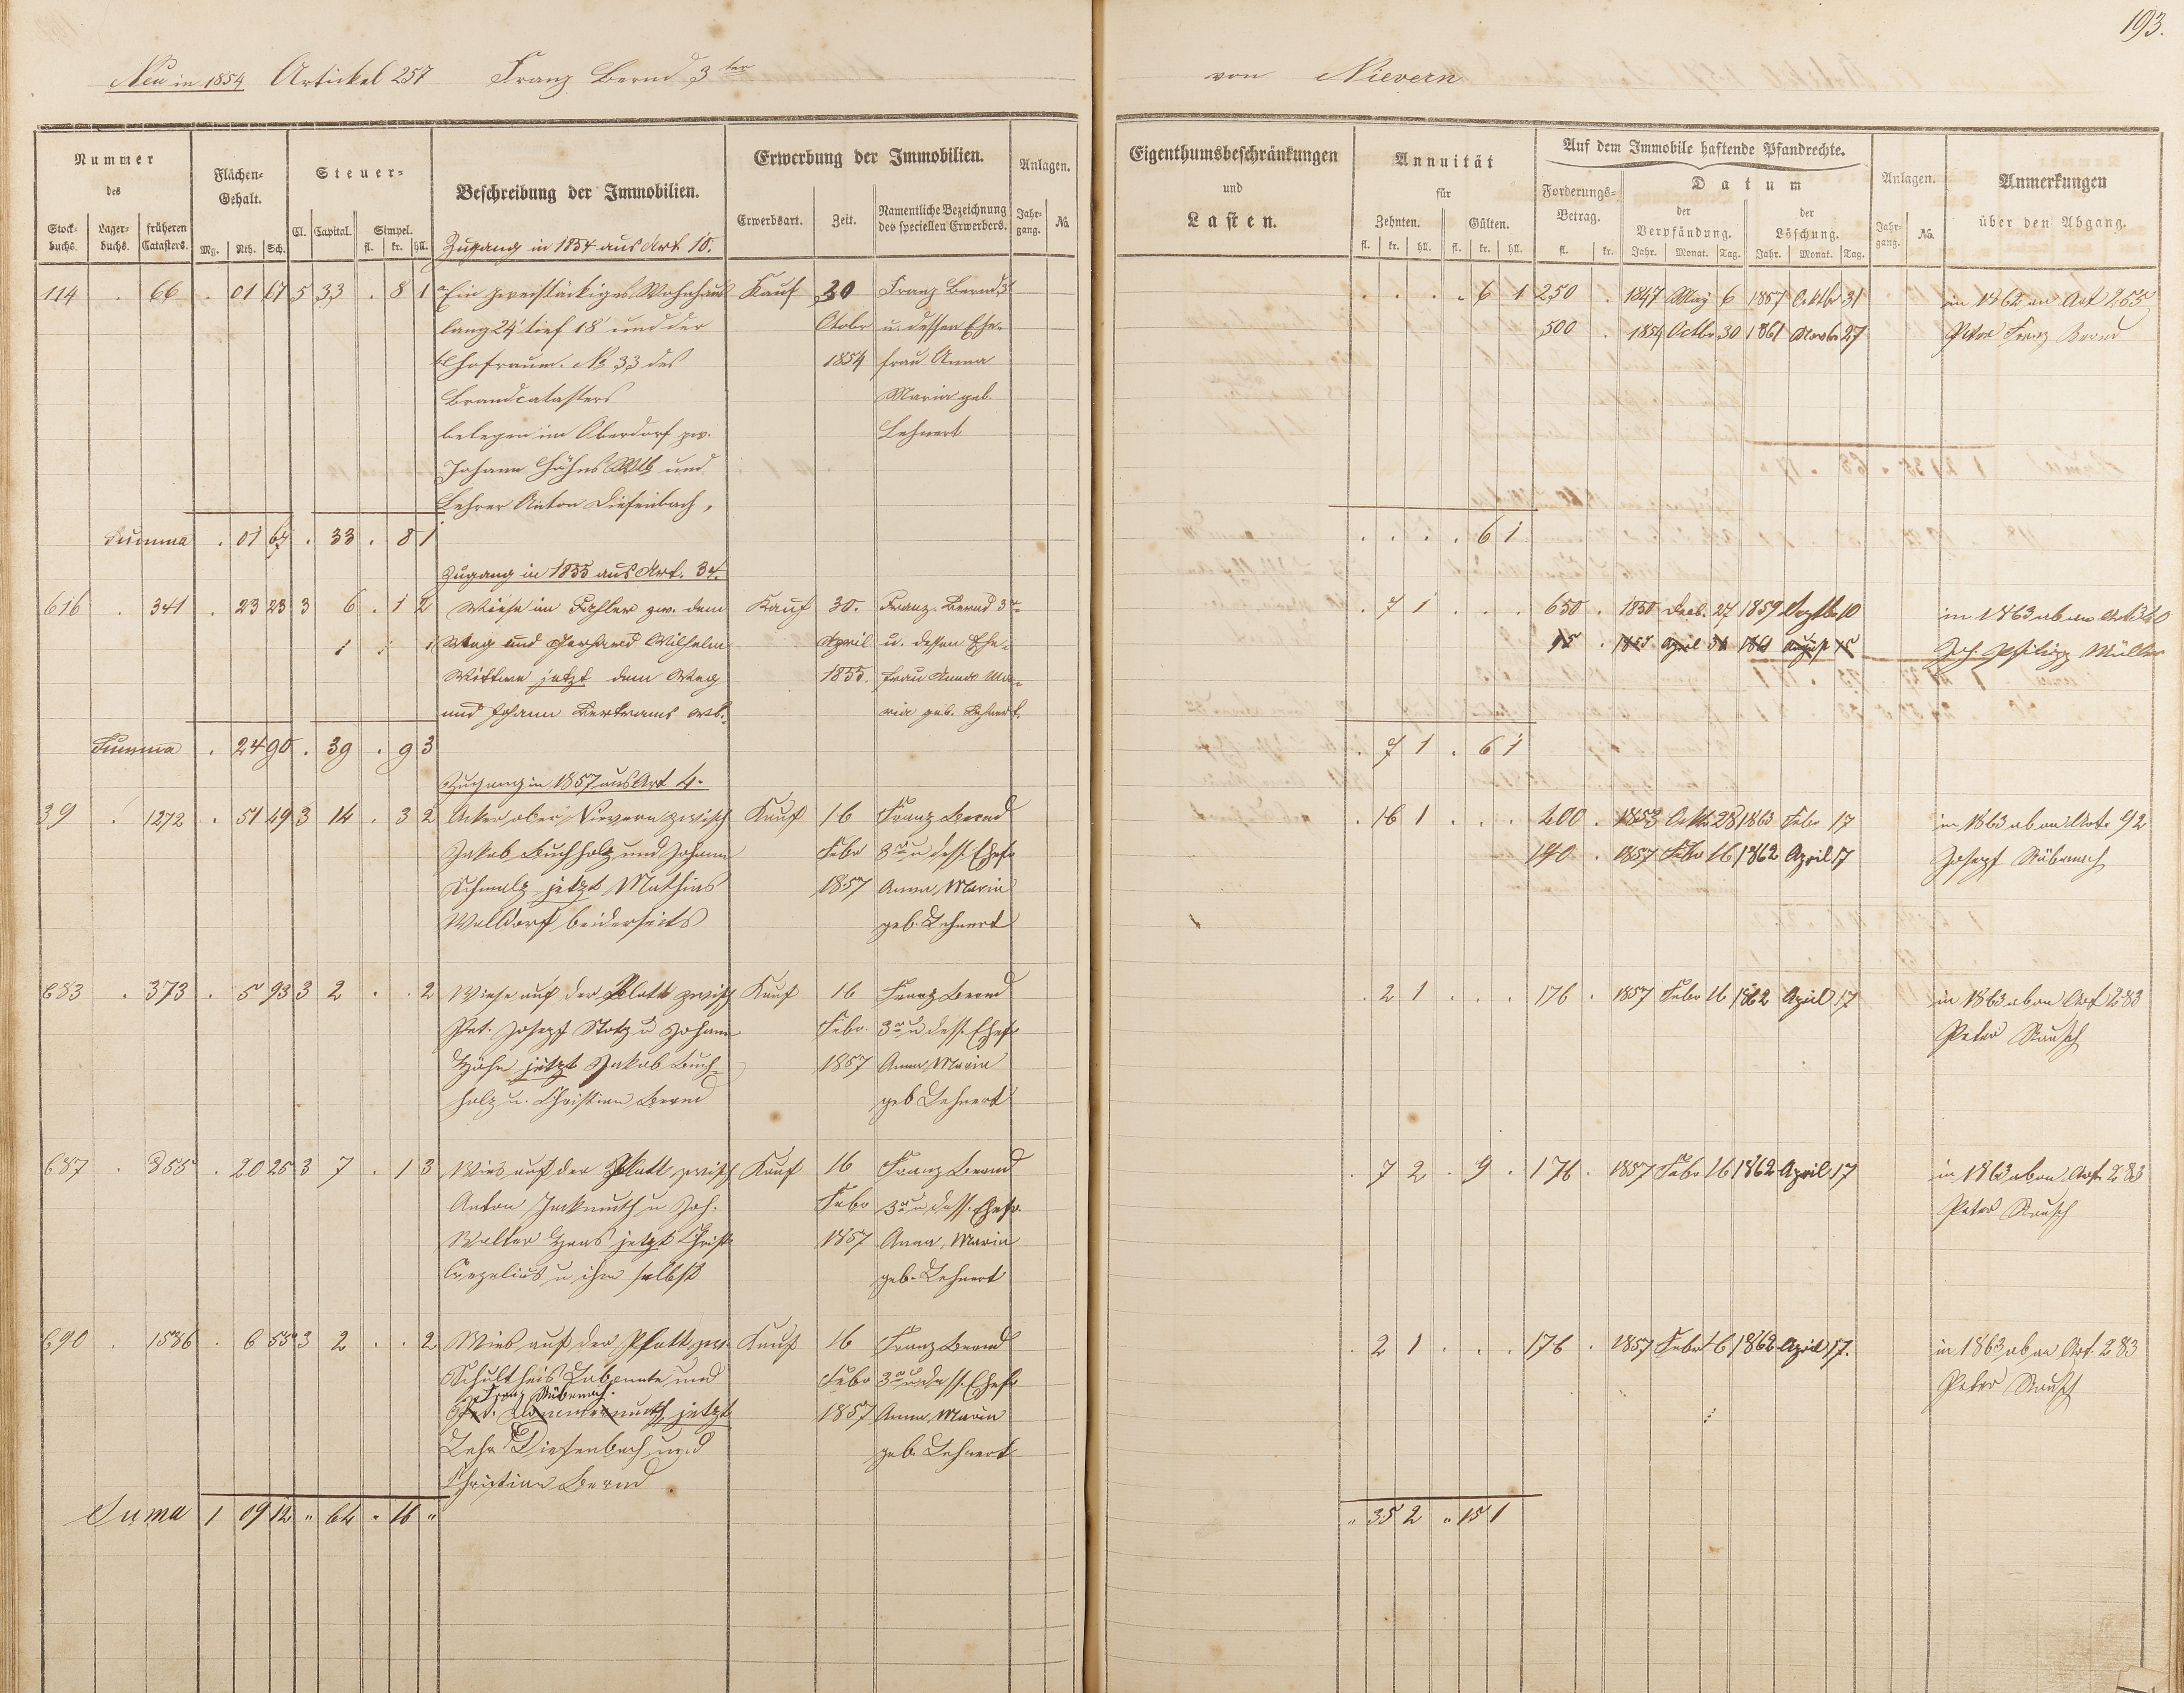 193.
Neu in 1854 Artickel 257 Franz Bernd 3ter
von Nievern
Nummer
des
Stock-
buchs.
Lager-
buchs.
früheren
Catasters.
Flächen-
Gehalt.
Mg. Rth. Sch.
Steuer-
Cl. Capital. Simpel.
fl. kr. hll.
Beschreibung der Immobilien.
Erwerbung der Immobilien.
Erwerbsart. Zeit. Namentliche Bezeichnung
des speciellen Erwerbers.
Anlagen.
Jahr-
gang. No.
Eigenthumsbeschränkungen
und
Lasten.
Annuität
für
Zehnten. Gülten.
fl. kr. hll. fl. kr. hll.
Auf dem Immobile haftende Pfandrechte.
Forderungs-
Betrag.
fl. kr.
Datum
der
Verpfändung.
Jahr. Monat. Tag.
der
Löschung.
Jahr. Monat. Tag.
Anlagen.
Jahr-
gang. No.
Anmerkungen
über den Abgang.
Zugang in 1854 aus Art 10.
114 . 66 . 01 67 5 33 . 8 1 Ein zweistäckiges Wohnhaus Kauf 30 Franz Bernd 3t . . . . 6 1 250 . 1847 May 6 1857 Octbr 31 in 1862 an Art 265
lang 24' tief 18' und der Octobr u. dessen Ehe- 500 . 1854 Octbr 30 1861 Novbr 27 Peter Franz Bernd
Hofraum. No 33 des 1854 frau Anna
Brandcatasters Maria geb.
belegen im Oberdorf zw. Lehnert
Johann Hähns Wtb und
Lehrer Anton Diefenbach,
Summa . 01 67 . 33 . 8 1 . . . . 6 1
Zugang in 1855 aus Art. 34.
616 . 341 . 23 23 3 6 . 1 2 Wiese im Fahler zw. dem Kauf 30. Franz Bernd 3r . 7 1 . . . 650 . 1850 Decb. 27 1859 Septbr 10 in 1863 ab an Art 320
Weg und Gerhard Wilhelm April u. dessen Ehe- 15 . April August 15 Joh. Philipp Müller
Wittwe jetzt dem Weg 1855. frau Anna Ma-
und Johann Bertrams Wb. ria geb. Lehnert.
Summa . 24 90 . 39 . 9 3 . 7 1 . 6 1
Zugang in 1857 aus Art 4.
39 . 1272 . 51 49 3 14 . 3 2 Acker ober Nievern zwisch Kauf 16 Franz Bernd . 16 1 . . . 400 . 1853 Octb 28 1863 Febr 17 in 1863 ab an Art. 92
Jakob Buchholz und Johann Febr 3r u dess. Ehefr 140 . 1857 Febr 16 1862 April 17 Joseph Rübenach
Schmalz jetzt Mathias 1857 Anna Maria
Walldorf beiderseits geb. Lehnert
683 . 373 . 5 93 3 2 . . 2 Wiese auf der Platt zwisch Kauf 16 Franz Bernd . 2 1 . . . 176 . 1857 Febr 16 1862 April 17 in 1863 ab an Art 283
Pet. Joseph Stotz u Johann Febr. 3r u dess. Ehefr Peter Rausch
Hähn jetzt Jakob Buch- 1857 Anna Maria
holz u. Christian Bernd geb Lehnert
687 . 355 . 20 25 3 7 . 1 3 Wies auf der Platt zwisch Kauf 16 Franz Bernd . 7 2 . 9 . 176 . 1857 Febr 16 1862 April 17 in 1863 ab an Art. 283
Anton u Joh. Febr 3r u dess. Ehefr. Peter Rausch
Walter jetzt Christ 1857 Anna Maria
u ihm selbst geb. Lehnert
690 . 1536 . 6 55 3 2 . . 2 Wies auf der Platt zw. Kauf 16 Franz Bernd . 2 1 . . . 176 . 1857 Febr 16 1862 April 17. in 1863 ab an Art. 283
Schultheis und Febr 3r u dess. Ehefr Peter Rausch
Franz Rübenach.
jetzt 1857 Anna Maria
Lehr Diefenbach und geb. Lehnert
Christian Bernd
Suma 1 09 12 " 64 " 16 " " 35 2 " 15 1